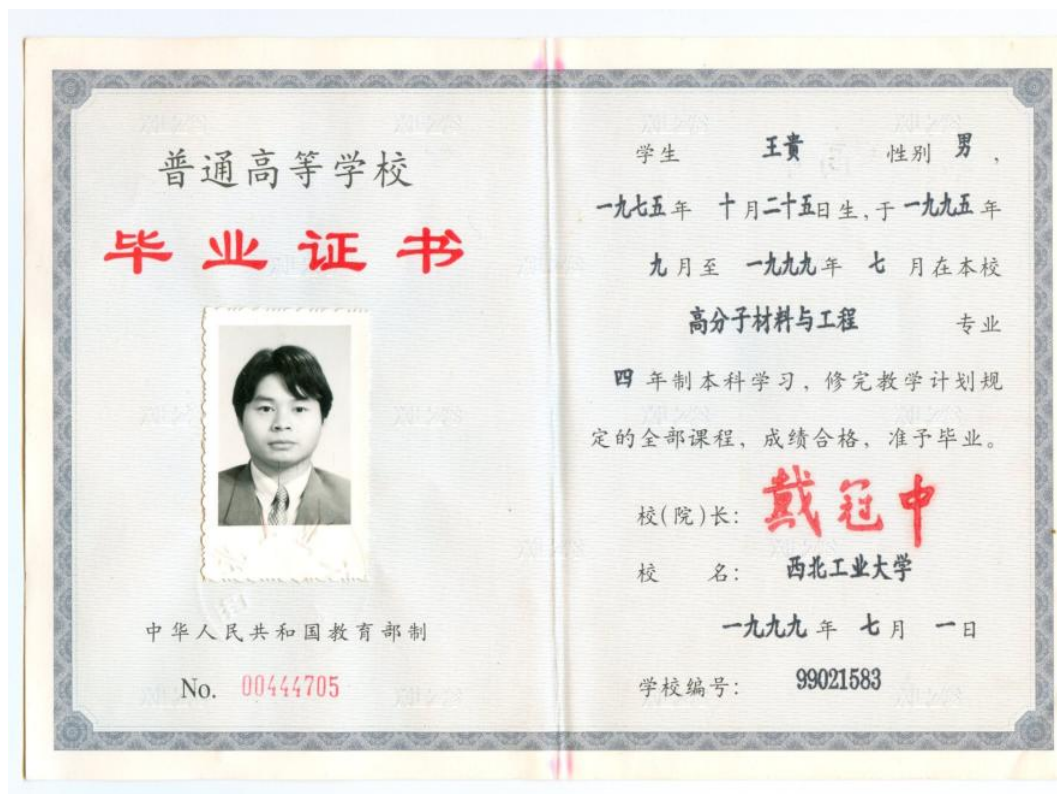 普通高等学校
毕业证书
中华人民共和国教育部制
No. 00444705
学生 王贵 性别 男,
一九七五年 十月二十五日生,于一九九五年
九月至 一九九九年 七 月在本校
高分子材料与工程 专业
四 年制本科学习，修完教学计划规
定的全部课程，成绩合格，准予毕业。
校(院)长: 戴冠中
校 名: 西北工业大学
一九九九 年 七月 一日
学校编号: 99021583